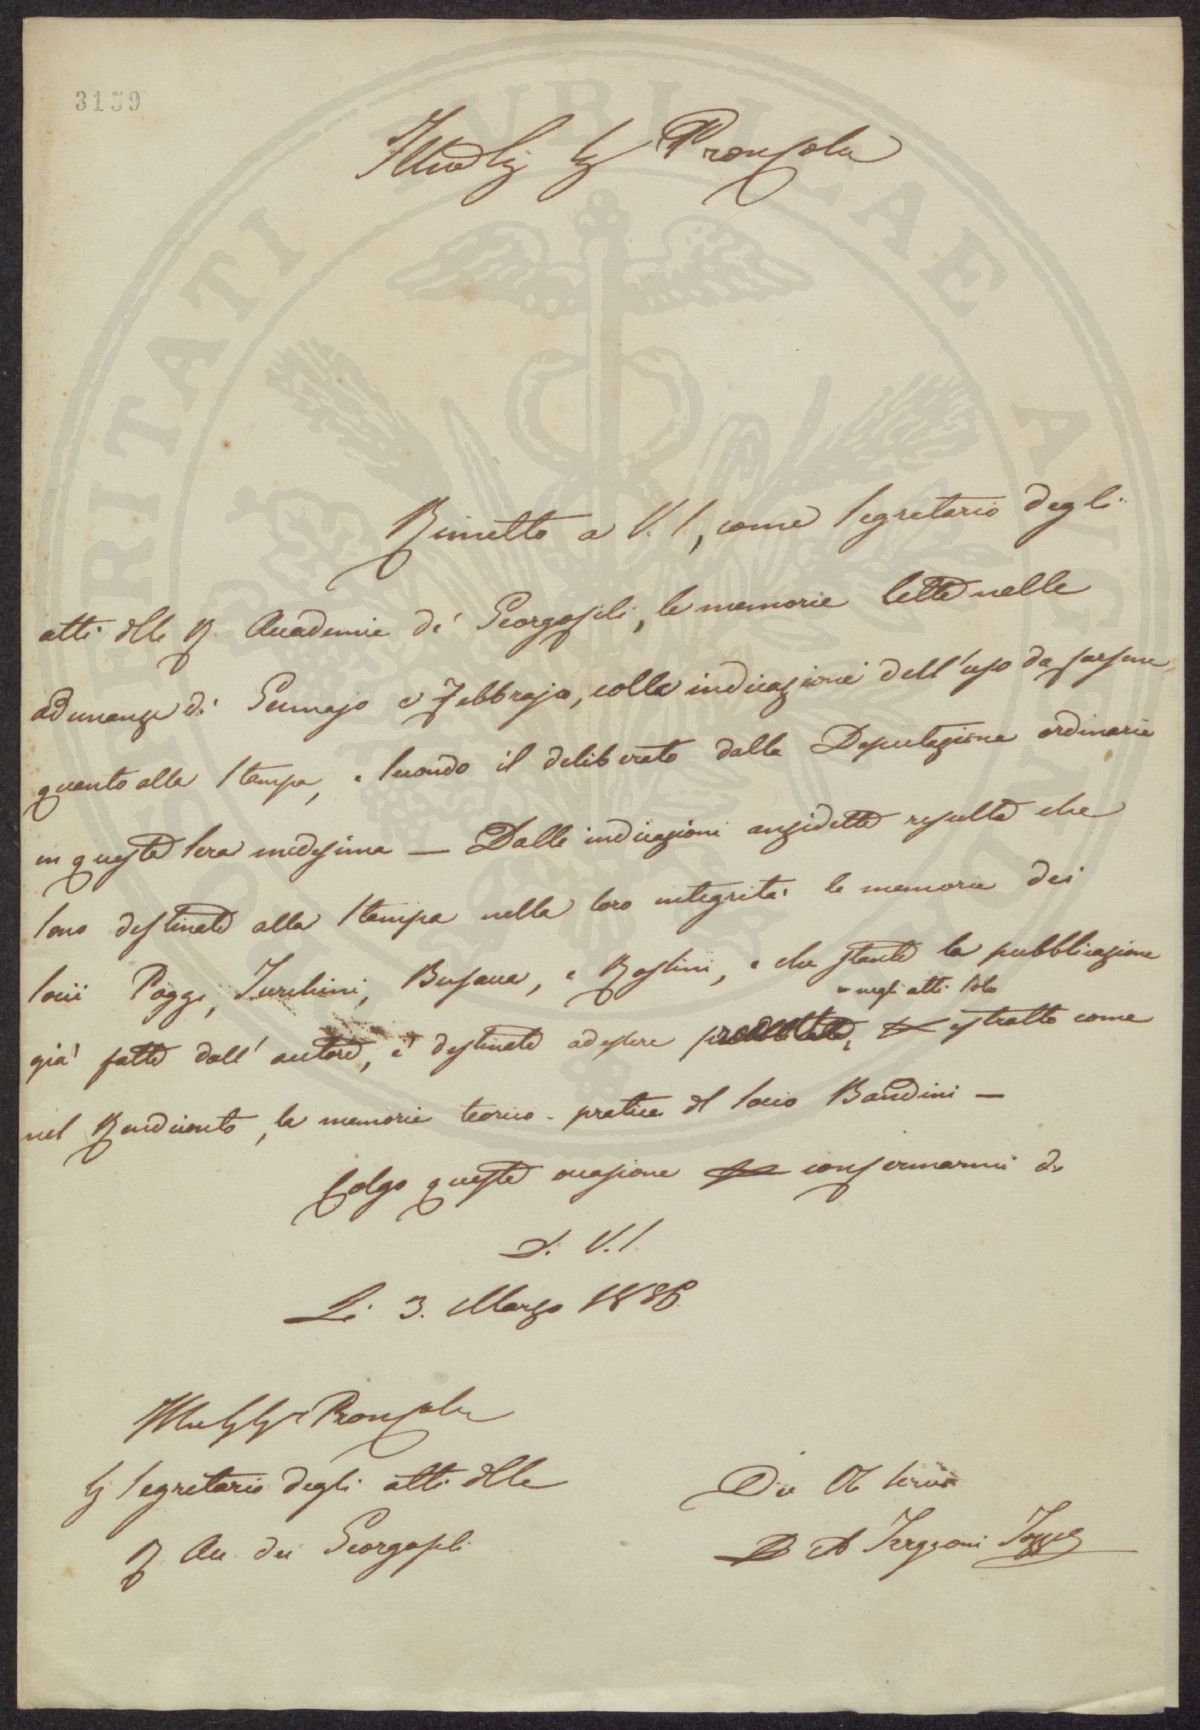 3159
Rimetto a V. S., come Segretario degli
atti della R. Accademia de' Georgofili, le memorie lette nelle
adunanze di Gennajo e Febbrajo, colla indicazione dell'uso da farsene
quanto alla Stampa, secondo il deliberato dalla Deputazione ordinaria
in questa sera medesima — Dalle indicazioni anzidette resulta che
sono destinate alla Stampa nella loro integrità le memorie dei
Socii Poggi, Turchini, e che stante la pubblicazione
negli atti solo
già fatta dall'autore, è destinata ad essere estratto come
nel Rendiconto, la memoria teorico-pratica del Socio Bandini —
Colgo questa occasione confermarmi di
D. V. S.
Li 3. Marzo 1836
Segretario degli atti della
R. Acc. dei Georgofili
Dev Ob Servo
D A Targioni Tozz